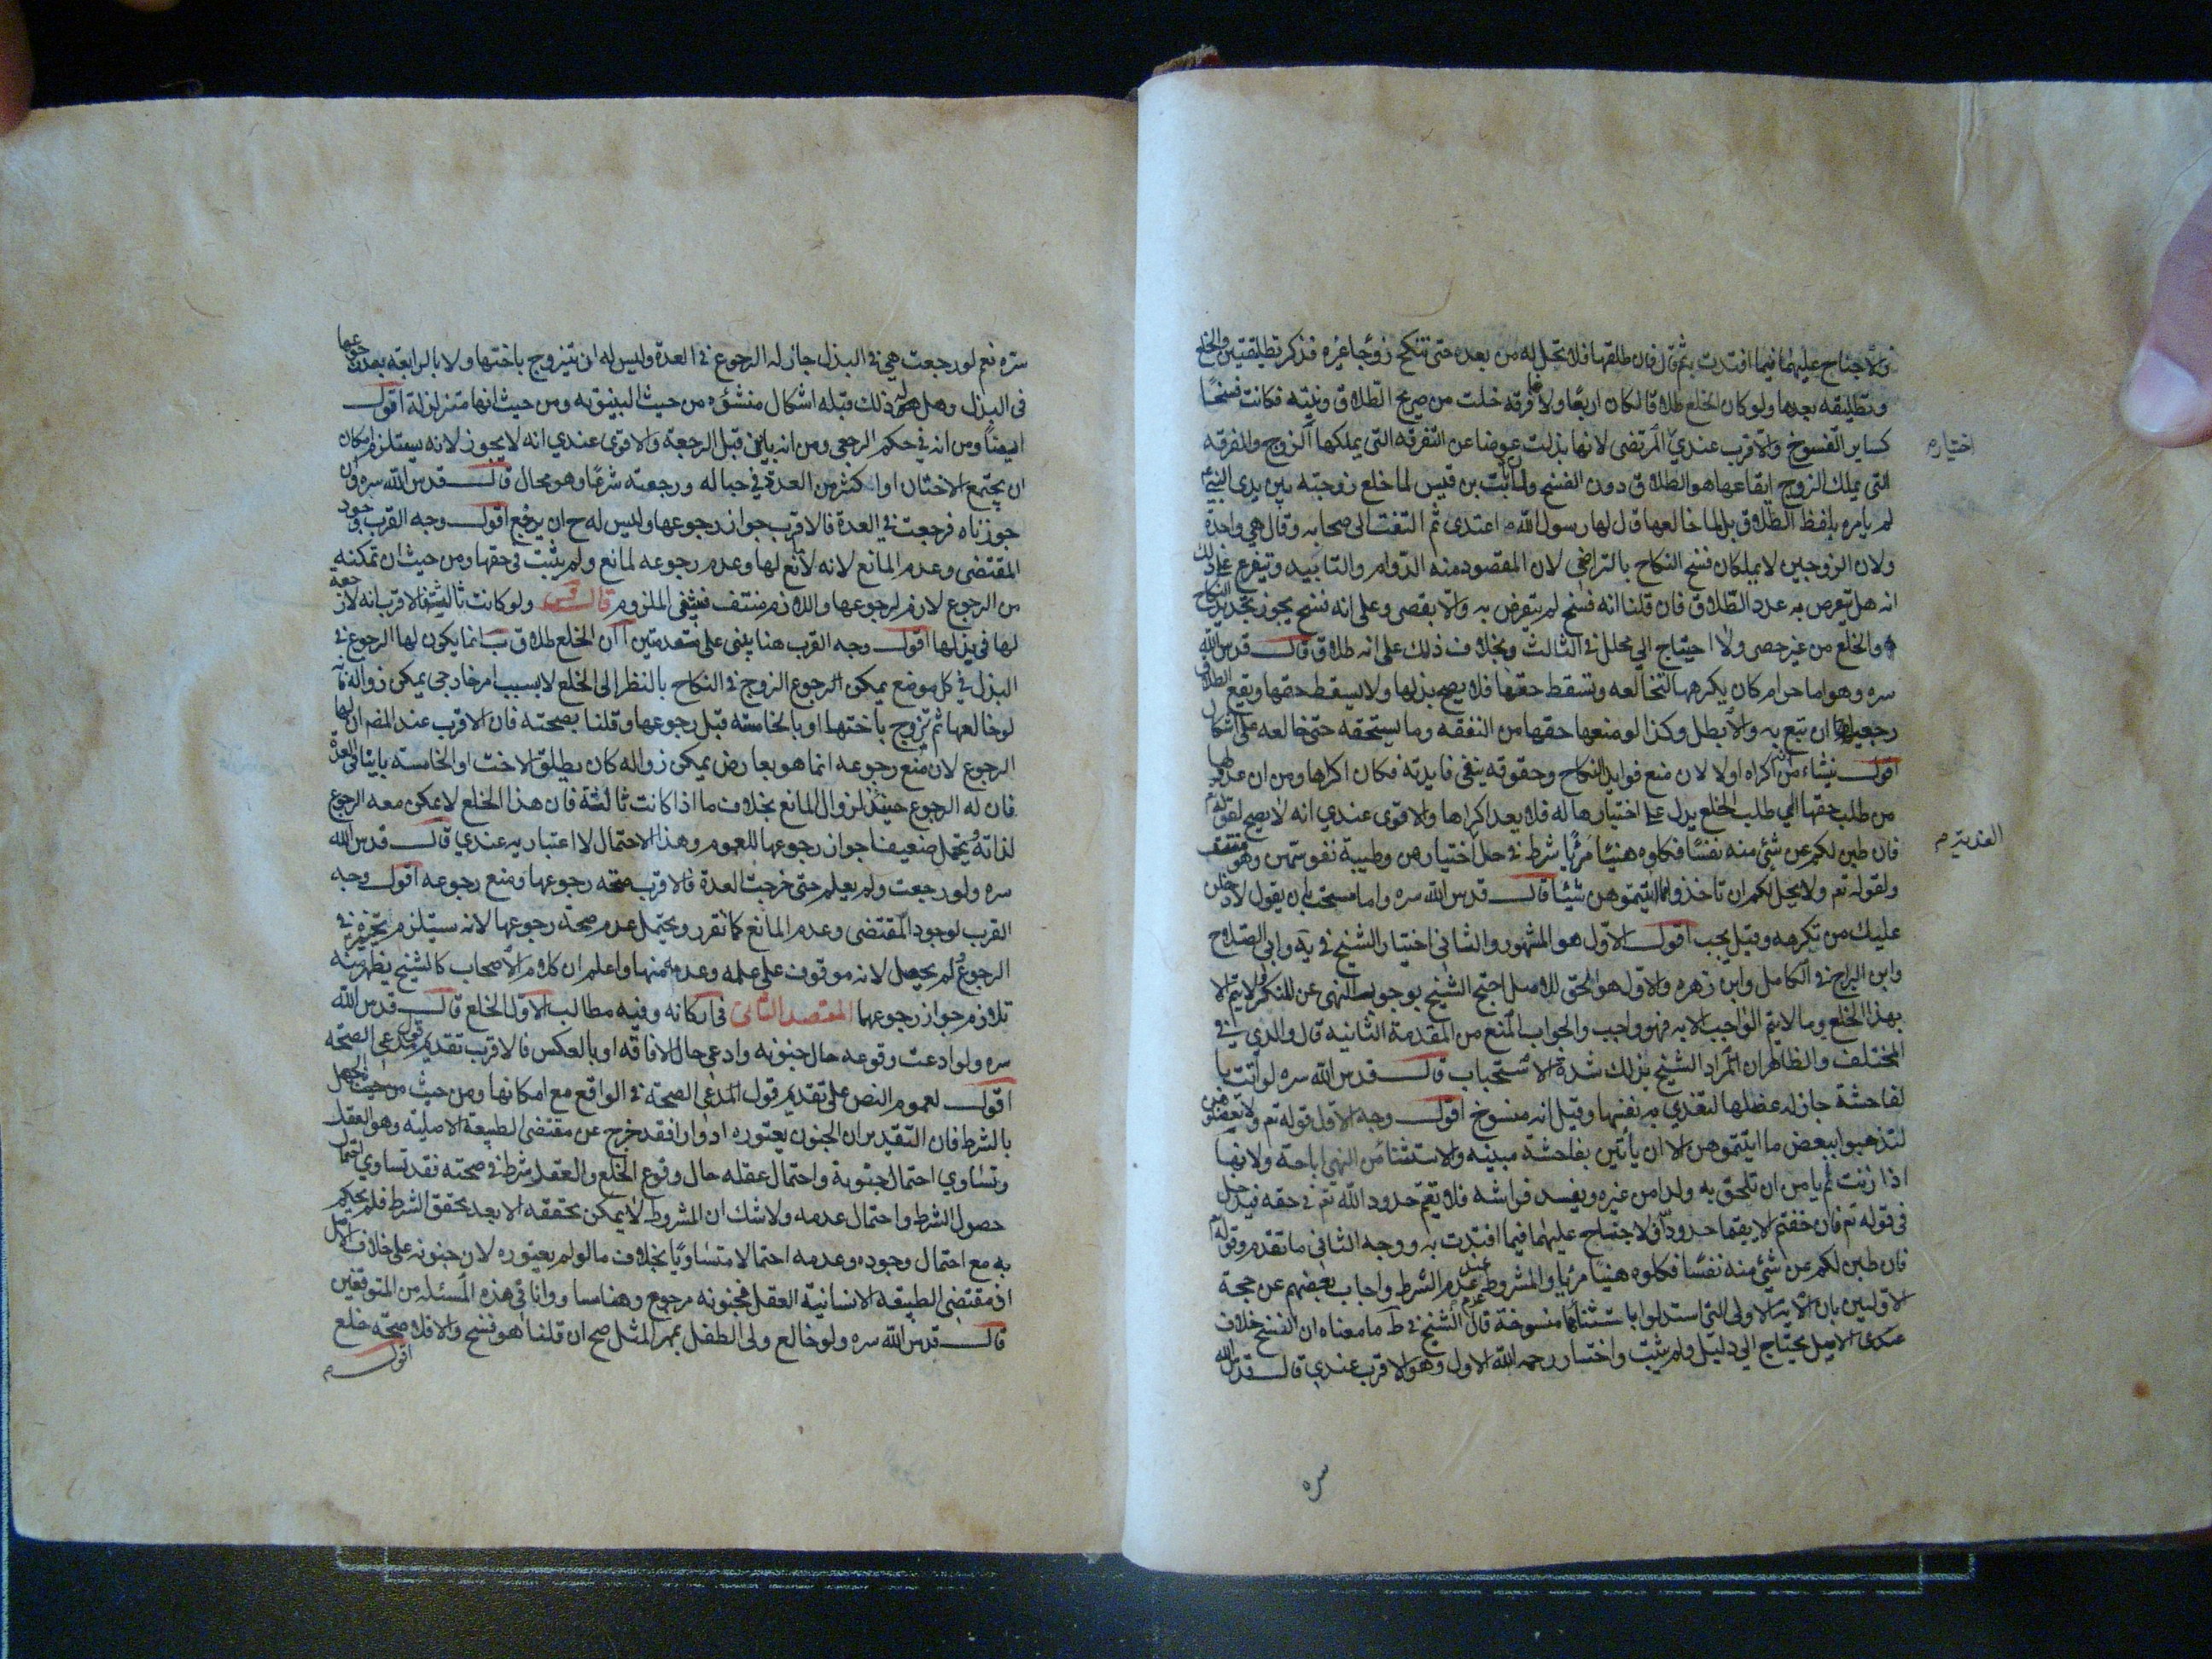 ولا جناح عليهما فيما افتدت به ثم قال فان طلقها فلا تحل له من بعد حتى تنكح زوجًا غيره فذكر تطليقتين والخلع
وتطليقه بعدها ولو كان الخلع طلاقا لكان اربعًا ولانها فرقه خلت من صريح الطلاق ونيته فكانت فسخًا
كساير الفسوخ والاقرب عندي المرتضى لانها بذلت عوضا عن التفرقه التى يملكها الزوج والفرقه
التى يملك الزوج ايقاعها هو الطلاق دون الفسخ ولان ثابت بن قيس لما خلع زوجته بين يدى النبى
لم يامره بلفظ الطلاق بل لما خالعها قال لها رسول الله اعتدى ثم التفت الى صحابه وقال هى واحدة
ولان الزوجين لا يملكان فسخ النكاح بالتراضى لان المقصود منه الدوام والتابيد ويتفرع على ذلك
انه هل يتعرض به عدد الطلاق فان قلنا انه فسخ لم يتعرض به والا نقص وعلى انه فسخ يجوز تجديد النكاح
والخلع من غير حصر ولا احتياج الى محلل فى الثالث وبخلاف ذلك على انه طلاق قال قدس الله
سره وهو اما حرام كان يكرهها لتخالعه وتسقط حقها فلا يصح بذلها ولا يسقط حقها ويقع الطلاق
رجعيا ان تبع به والا بطل وكذا لو منعها حقها من النفقه وما يستحقه حتى خالعه على اشكال
اقول ينشاء من انه اكراه اولا لان منع فوايد النكاح وحقوقه ينفى فايدته فكان اكراها ومن ان عدولها
من طلب حقها الى طلب الخلع يدل على اختيارها له فلا يعد اكراها والاقوى عندي انه لا يصح لقوله
فان طبن لكم عن شئ منه نفسًا فكلوه هنيئًا مريئًا شرط فى حل اختيارهن وطيبة نفوسهن وهو
ولقوله تع ولا يحل لكم ان تاخذوا مما اتيتموهن شيئًا قال قدس الله سره واما مستحب بان يقول لادخلن
عليك من تكرهه وقيل يجب اقول الاول هو المشهور والثانى اختيار الشيخ فى ية وابى الصلاح
وابن البراج فى الكامل وابن زهره والاول هو الحق للاصل احتج الشيخ بوجوب النهى عن المنكر ولا يتم الا
بهذا الخلع وما لا يتم الواجب الا به فهو واجب والجواب المنع من المقدمة الثانيه قال والدي فى
المختلف والظاهر ان مراد الشيخ بذلك شدة الاستحباب قال قدس الله سره لو اتت با
لفاحشة جاز له عضلها لتفدي به نفسها وقيل انه منسوخ اقول وجه الاول قوله تع ولا تعضلوهن
لتذهبوا ببعض ما اتيتموهن الا ان ياتين بفاحشة مبينه والاستثنا من النهى اباحة ولانها
اذا زنت لم يامن ان تلحق به ولدا من غيره ويفسد فراشه فلا يقيم حدود الله تع فى حقه فيدخل
فى قوله تع فان خفتم الا يقيما حدود الله فلا جناح عليهما فيما افتدت به ووجه الثانى ما تقدم وقوله
فان طبن لكم عن شئ منه نفسًا فكلوه هنيئًا مريئًا والمشروط عدم عند عدم الشرط واجاب بعضهم عن حجة
الاولين بان الاية الاولى التى استدلوا باستثنائها منسوخة قال الشيخ فى ط ما معناه ان الفسخ خلاف
الاصل يحتاج الى دليل ولم يثبت واختار رحمه الله الاول وهو الاقرب عندي قال قدس الله
اختياره
سره
سره نعم لو رجعت هى فى البذل جاز له الرجوع فى العدة وليس له ان يتزوج باختها ولا بالرابعة بعد رجوعها
فى البذل وهل له ذلك قبله اشكال منشؤه من حيث البينونه ومن حيث انها متزلزلة اقول
ايضًا ومن انه فى حكم الرجعى ومن انه باين قبل الرجعة والاقوى عندي انه لا يجوز لانه يستلزم امكان
ان يجتمع الاختان او اكثر من العدة فى حباله ورجعته شرعًا وهو محال قال قدس الله سره وان
جوزناه فرجعت فى العدة فالاقرب جواز رجوعها وليس له ح ان يرجع اقول وجه القرب وجود
المقتضى وعدم المانع لانه لا مانع لها وعدم رجوعه لمانع ولم يثبت فى حقها ومن حيث ان تمكنه
من الرجوع لازم لرجوعها واللازم منتف فينتفى الملزوم قال قدس ولو كانت ثالثة فالاقرب انه لا رجعة
لها فى بذلها اقول وجه القرب هنا يبنى على مقدمتين ا ان الخلع طلاق ب انما يكون لها الرجوع فى
البذل فى كل موضع يمكن الرجوع الزوج فى النكاح بالنظر الى الخلع لا بسبب امر خارجى يمكن زواله
لو خالعها ثم تزوج باختها او بالخامسه قبل رجوعها وقلنا بصحته فان الاقرب عند المصنف ان لها
الرجوع لان منع رجوعه انما هو بعارض يمكن زواله كان يطلق الاخت او الخامسة باينا فى العدة
فان له الرجوع حينئذ لزوال المانع بخلاف ما اذا كانت ثالثة فان هذا الخلع لا يمكن معه الرجوع
لذاته ويحتمل ضعيفا جواز رجوعها للعموم وهذا الاحتمال لا اعتبار به عندي قال قدس الله
سره ولو رجعت ولم يعلم حتى خرجت العدة فالاقرب صحه رجوعها ومنع رجوعه اقول وجه
القرب لوجود المقتضى وعدم المانع كما تقرر ويحتمل عدم صحة رجوعها لانه يستلزم تخييره فى
الرجوع ولم يحصل لانه موقوف على علمه وعدمه منها واعلم ان كلام الاصحاب كالشيخ يظهر منه
تلازم جواز رجوعهما المقصد الثانى فى اركانه وفيه مطالب الاول الخلع قال قدس الله
سره ولو ادعت وقوعه حال جنونه وادعى حال الافاقه او بالعكس فالاقرب تقديم قول مدعى الصحه
اقول لعموم النص على تقديم قول المدعى الصحة فى الواقع مع امكانها ومن حيث الجهل
بالشرط فان التقدير ان الجنون يعتوره ادوارا فقد خرج عن مقتضى الطبيعة الاصلية وهو العقل
وتساوي احتمال جنونه واحتمال عقله حال وقوع الخلع والعقل شرط فى صحته فقد تساوي احتمال
حصول الشرط واحتمال عدمه ولا شك ان المشروط لا يمكن تحققه الا بعد تحقق الشرط فلم يحكم
به مع احتمال وجوده وعدمه احتمالا متساويًا بخلاف ما لو لم يعتوره لان جنونه على خلاف الاصل
اذ مقتضى الطبيعه الانسانية العقل فجنونه مرجوح وهنا مساو وانا فى هذه المسئلة من المتوقفين
قال قدس الله سره ولو خالع ولى الطفل بمهر المثل صح ان قلنا هو فسخ والا فلا صحه خلع
اقول